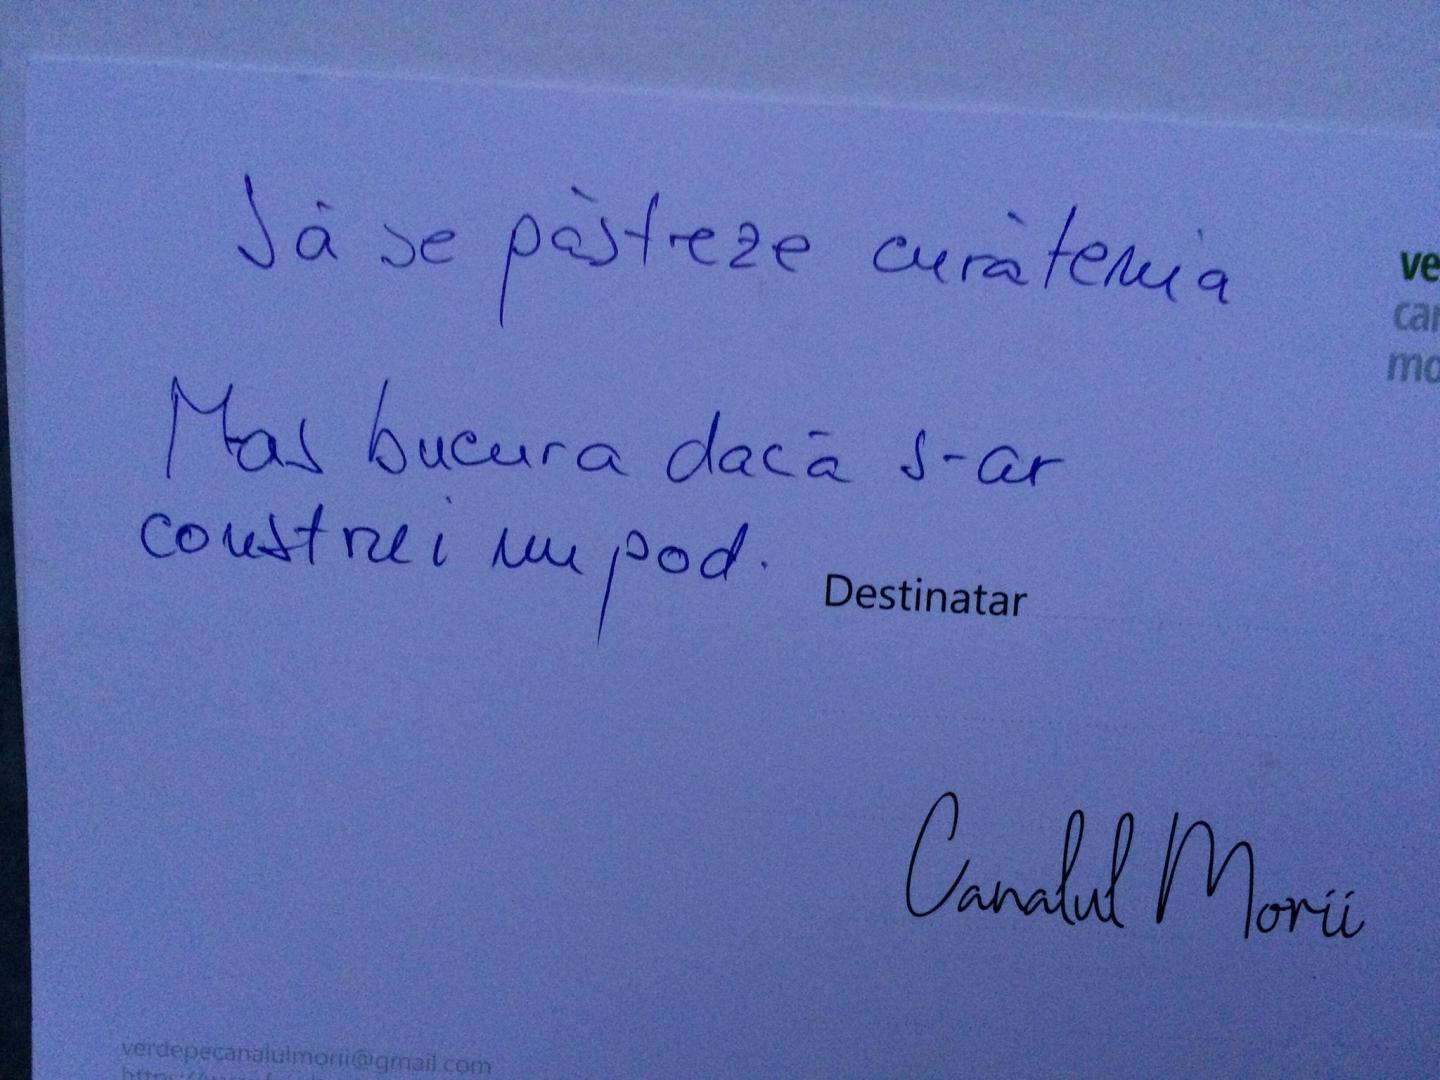 Să se păstreze curătenia
ve
car
mo
Mas bucura dacă s-ar
construi un pod.
Destinatar
Canalul Morii
verdepecanalulmorii@gmail.com